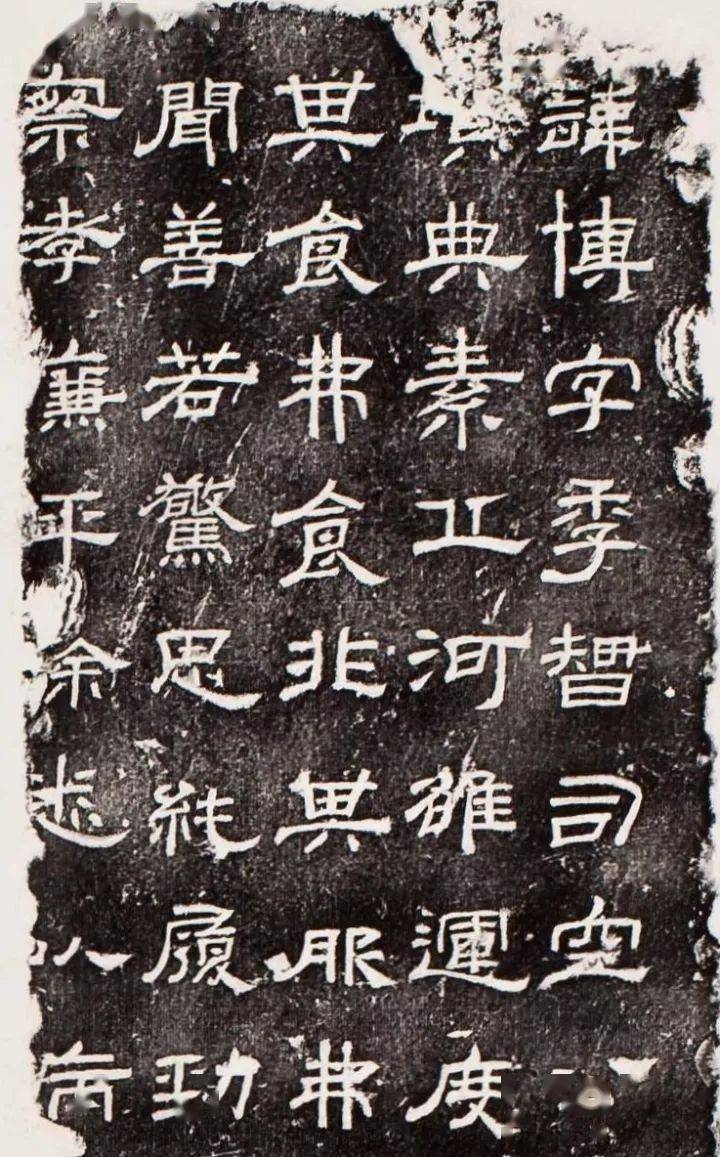 諱博字季智司空
典素丘河雒運度
其食弗食非其服弗
聞善若驚思純履勁
察孝廉以病